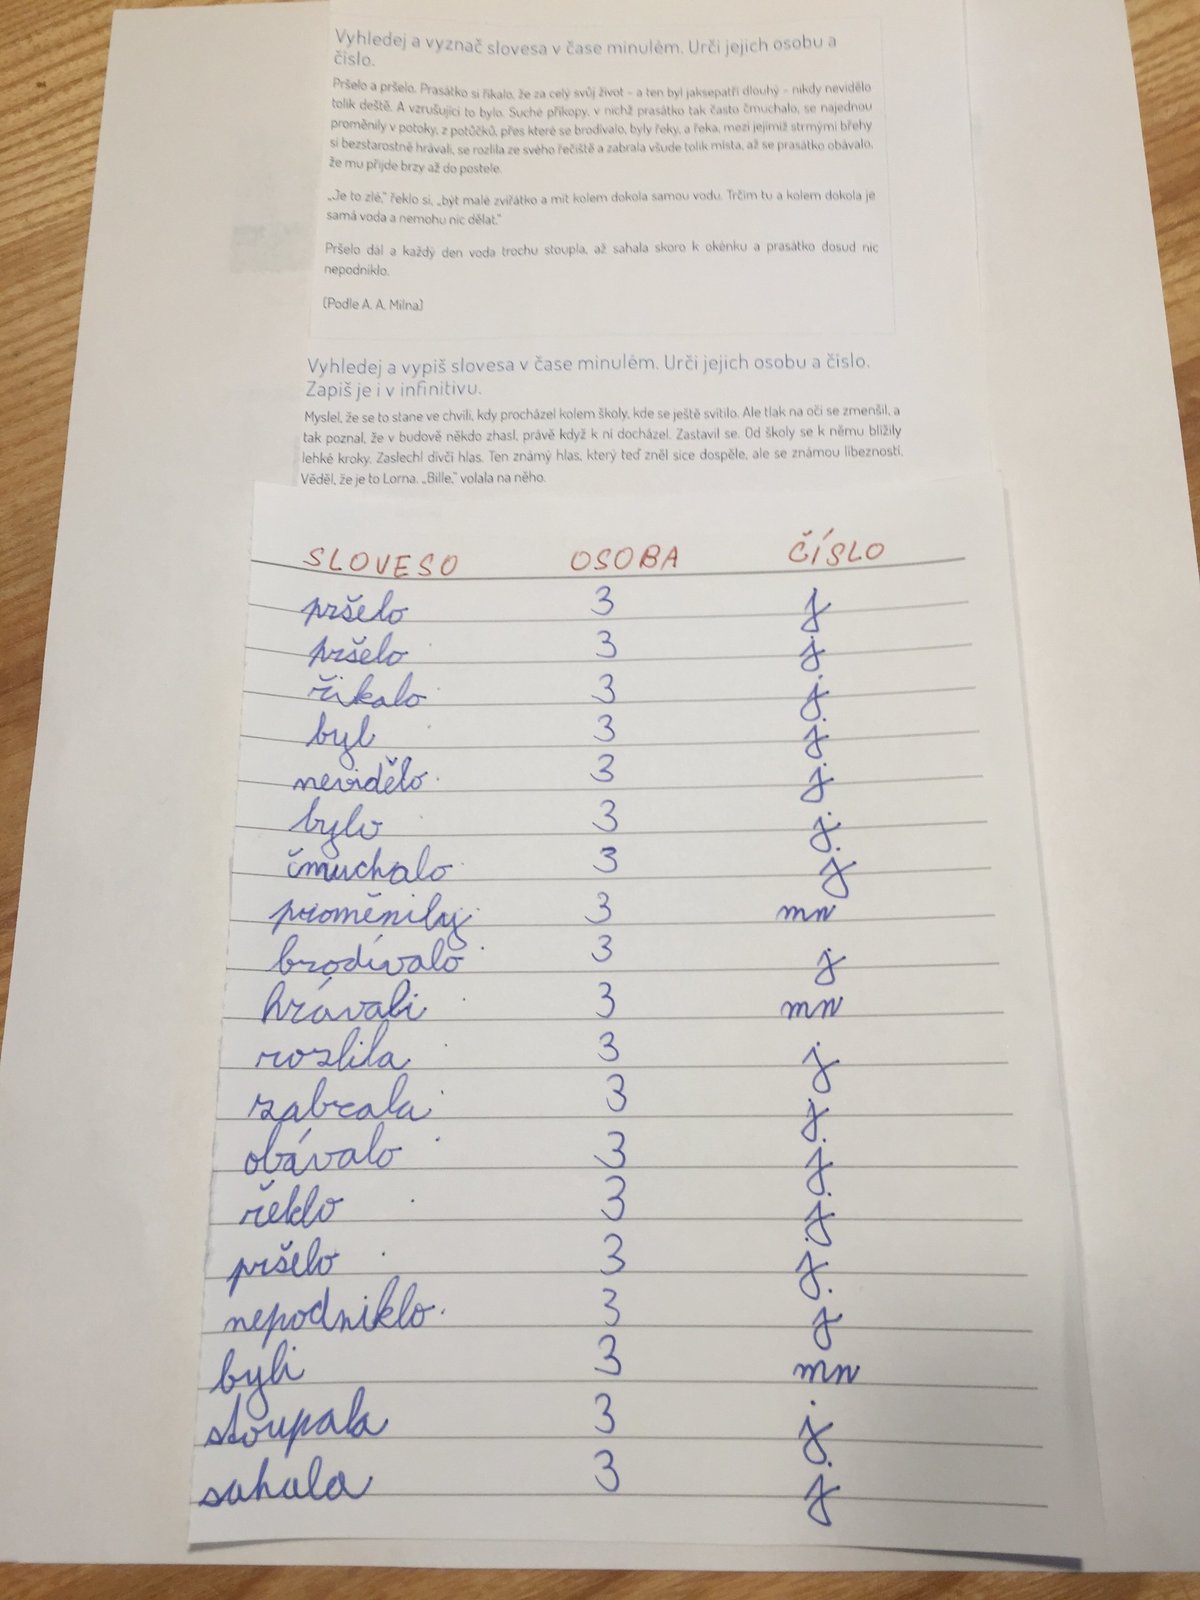 Vyhledej a vyznač slovesa v čase minulém. Urči jejich osobu a
číslo.
Pršelo a pršelo. Prasátko si říkalo, že za celý svůj život – a ten byl jaksepatří dlouhý – nikdy nevidělo
tolik deště. A vzrušující to bylo. Suché příkopy, v nichž prasátko tak často čmuchalo, se najednou
proměnily v potoky, z potůčků, přes které se brodívalo, byly řeky, a řeka, mezi jejímiž strmými břehy
si bezstarostně hrávali, se rozlila ze svého řečiště a zabrala všude tolik místa, až se prasátko obávalo,
že mu přijde brzy až do postele.
„Je to zlé,“ řeklo si, „být malé zvířátko a mít kolem dokola samou vodu. Trčím tu a kolem dokola je
samá voda a nemohu nic dělat.“
Pršelo dál a každý den voda trochu stoupla, až sahala skoro k okénku a prasátko dosud nic
nepodniklo.
(Podle A. A. Milna)
Vyhledej a vypiš slovesa v čase minulém. Urči jejich osobu a číslo.
Zapiš je i v infinitivu.
Myslel, že se to stane ve chvíli, kdy procházel kolem školy, kde se ještě svítilo. Ale tlak na oči se zmenšil, a
tak poznal, že v budově někdo zhasl, právě když k ní docházel. Zastavil se. Od školy se k němu blížily
lehké kroky. Zaslechl dívčí hlas. Ten známý hlas, který teď zněl sice dospěle, ale se známou líbezností.
Věděl, že je to Lorna. „Bille,“ volala na něho.
SLOVESO OSOBA ČÍSLO
pršelo 3 j
pršelo 3 j.
říkalo 3 j.
byl 3 j.
nevidělo 3 j.
bylo 3 j.
čmuchalo 3 j.
proměnily 3 mn
brodívalo 3 j
hrávali 3 mn
rozlila 3 j
zabrala 3 j.
obávalo 3 j.
řeklo 3 j.
pršelo 3 j.
nepodniklo 3 j
byli 3 mn
stoupala 3 j.
sahala 3 j